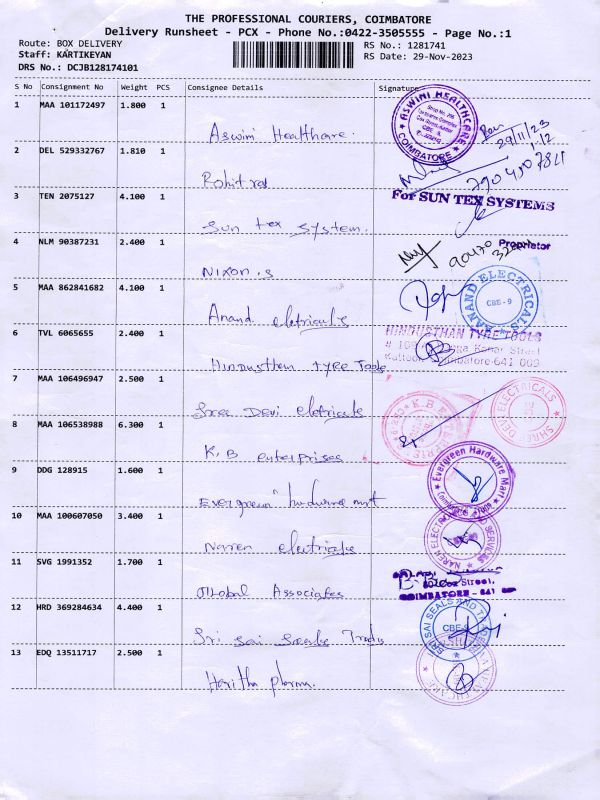 THE PROFESSIONAL COURIERS, COIMBATORE
Delivery Runsheet - PCX - Phone No.:0422-3505555 - Page No.:1
Route: BOX DELIVERY
RS No.: 1281741
Staff: KARTIKEYAN
RS Date: 29-Nov-2023
DRS No.: DCJB128174101
S No Consignment No Weight PCS Consignee Details Signature
1 MAA 101172497 1.800 1
Aswini Healthcare.
ASWINI HEALTHCARE
COIMBATORE
29/11/23
2 DEL 529332767 1.810 1
3 TEN 2075127 4.100 1
For SUN TEX SYSTEMS
Sun tex system.
Proprietor
4 NLM 90387231 2.400 1
Nixon.s
5 MAA 862841682 4.100 1
Anand eletricals
ANAND ELECTRICALS
CBE-9
6 TVL 6065655 2.400 1
HINDUSTHAN TYRE TOOLS
Street
Coimbatore-641 009
Hindusthan tyre Tools
7 MAA 106496947 2.500 1
Sree Devi eletricals
SHREE DEVI ELECTRICALS
8 MAA 106538988 6.300 1
K.B enterprises
K B
9 DDG 128915 1.600 1
Evergreen hardware mart
Evergreen Hardware Mart
10 MAA 100607050 3.400 1
Naren electricals
11 SVG 1991352 1.700 1
Global Associates
Street,
COIMBATORE - 641
12 HRD 369284634 4.400 1
Sri Sai Seals Trads
SRI SAI SEALS AND
CBE
13 EDQ 13511717 2.500 1
Haritha pharma.